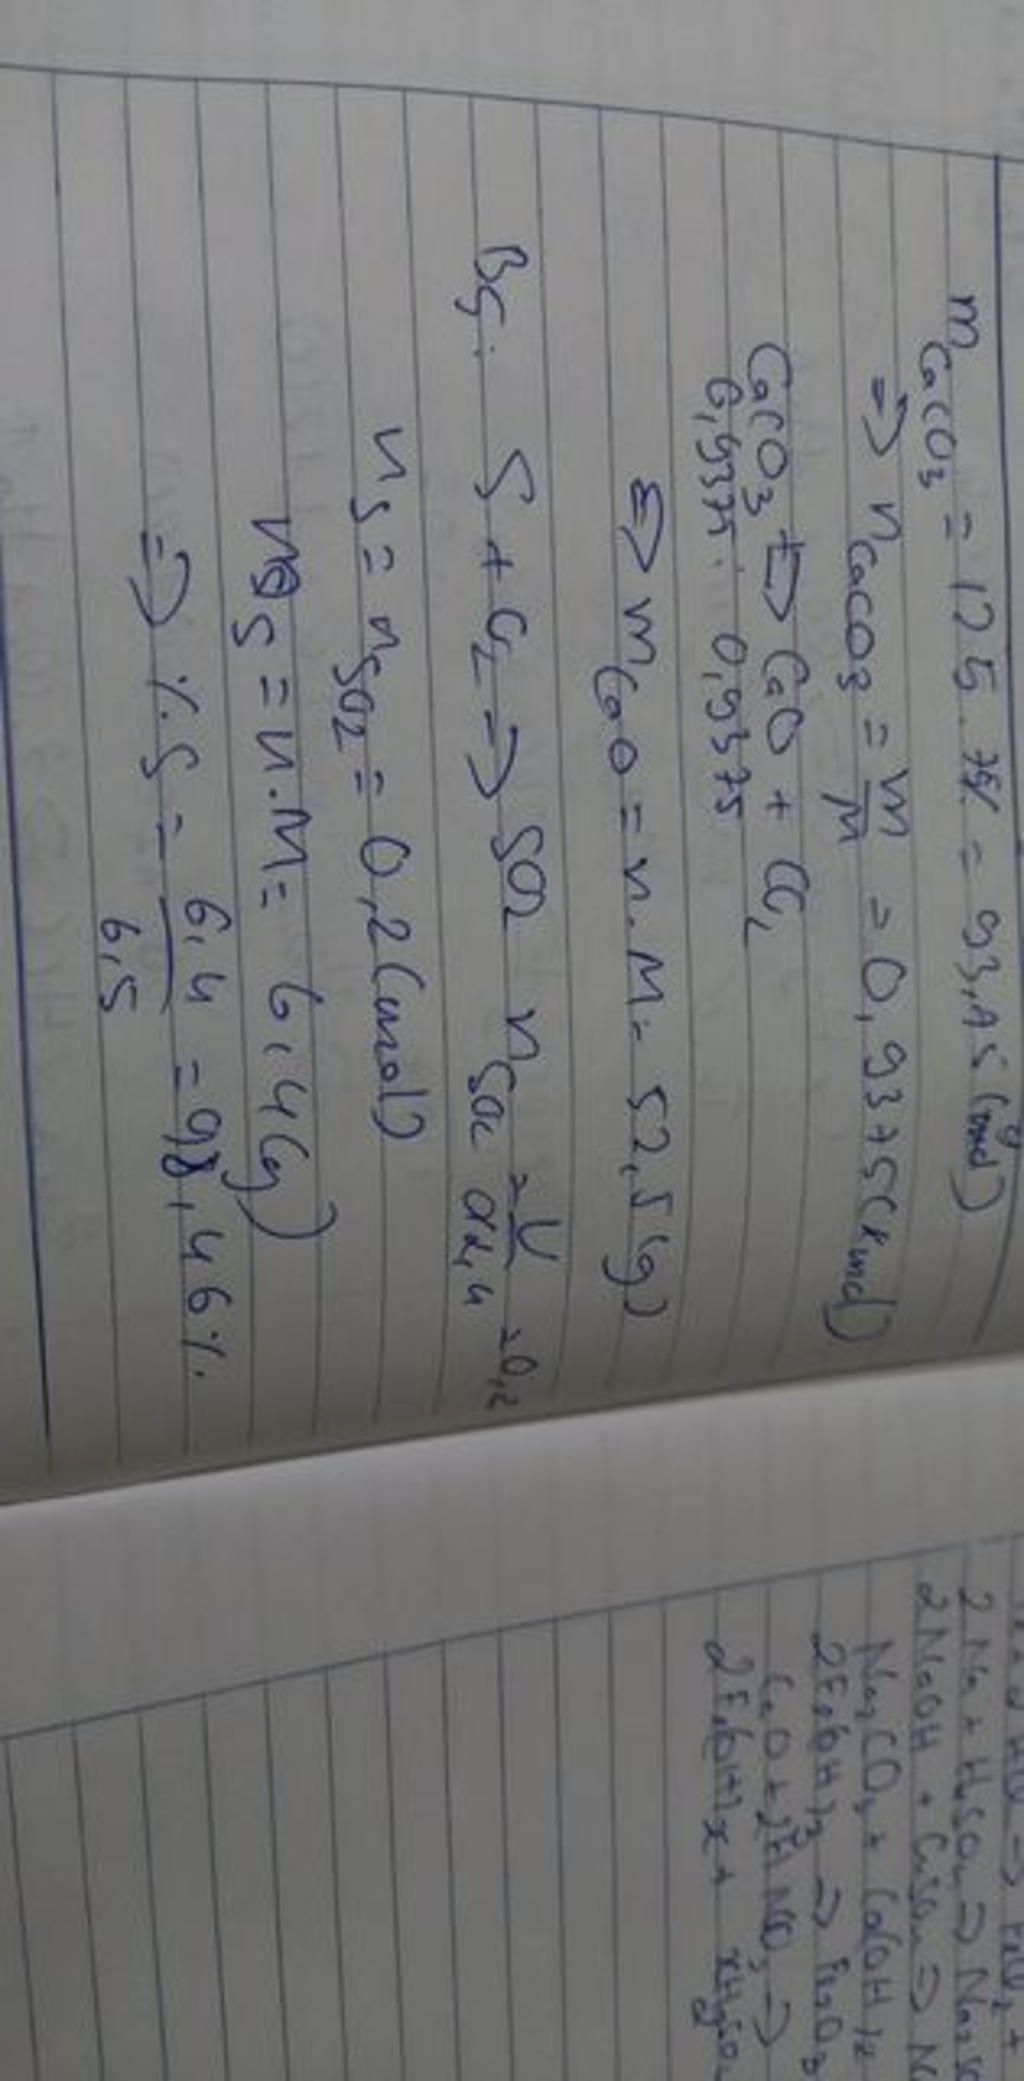 m CaCO3 = 125 . 75% = 93,75 (g)
=> n CaCO3 = m/M = 0,9375 (mol)
CaCO3 => CaO + CO2
0,9375 : 0,9375
=> m CaO = n.M = 52,5 (g)
B5: S + O2 => SO2 n SO2 = V/24,4 = 0,2
n S = n SO2 = 0,2 (mol)
m S = n.M = 6,4 (g)
=> % S = 6,4/6,5 = 98,46%
2Na + H2SO4 => Na2SO
2NaOH + CuSO4 => N
Na2CO3 + Ca(OH)2
2Fe(OH)3 => Fe2O3
CaO + 2HNO3 =>
2Fe(OH)x + xH2SO4